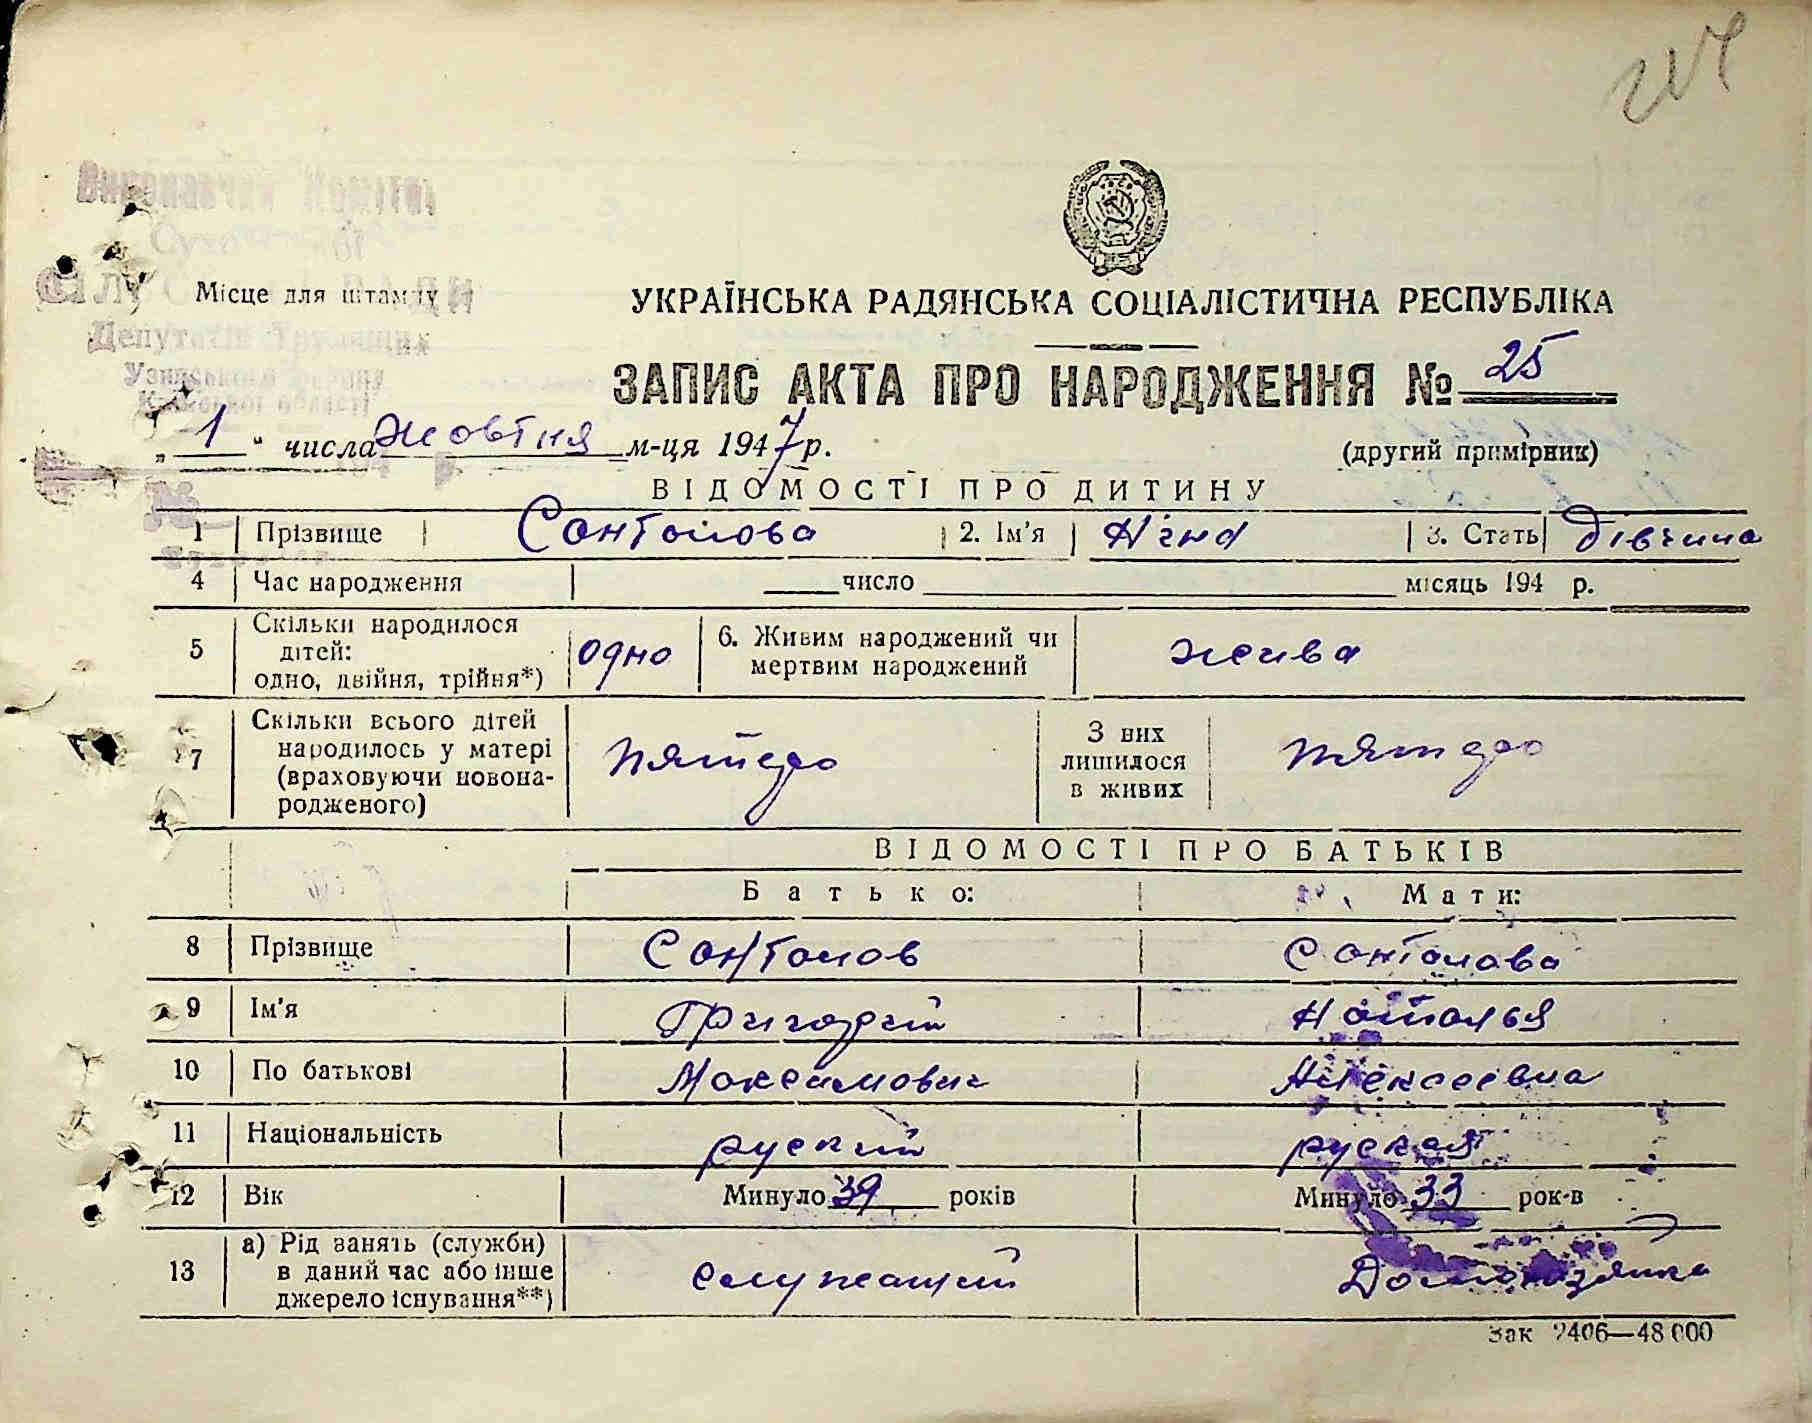 Виконавчий Комітет
СІЛ РАДИ
Депутатів Трудящих
Узинського району
Київської області
Місце для штампу
УКРАЇНСЬКА РАДЯНСЬКА СОЦІАЛІСТИЧНА РЕСПУБЛІКА
ЗАПИС АКТА ПРО НАРОДЖЕННЯ № 25
„ 1 “ числа жовтня м-ця 1947 р.
(другий примірник)
ВІДОМОСТІ ПРО ДИТИНУ
1 Прізвище Сантолова 2. Ім'я Ніна 3. Стать дівчина
4 Час народження число місяць 194 р.
5 Скільки народилося дітей: одно, двійня, трійня*) одно 6. Живим народжений чи мертвим народжений жива
7 Скільки всього дітей народилось у матері (враховуючи новонародженого) пятеро З них лишилося в живих пятеро
ВІДОМОСТІ ПРО БАТЬКІВ
Батько: Мати:
8 Прізвище Сантолов Сантолова
9 Ім'я Григорий Наталья
10 По батькові Максимович Алексеевна
11 Національність руский руская
12 Вік Минуло 39 років Минуло 33 рок-в
13 а) Рід занять (служби) в даний час або інше джерело існування**) служащий Домохазяйка
Зак 2406—48 000